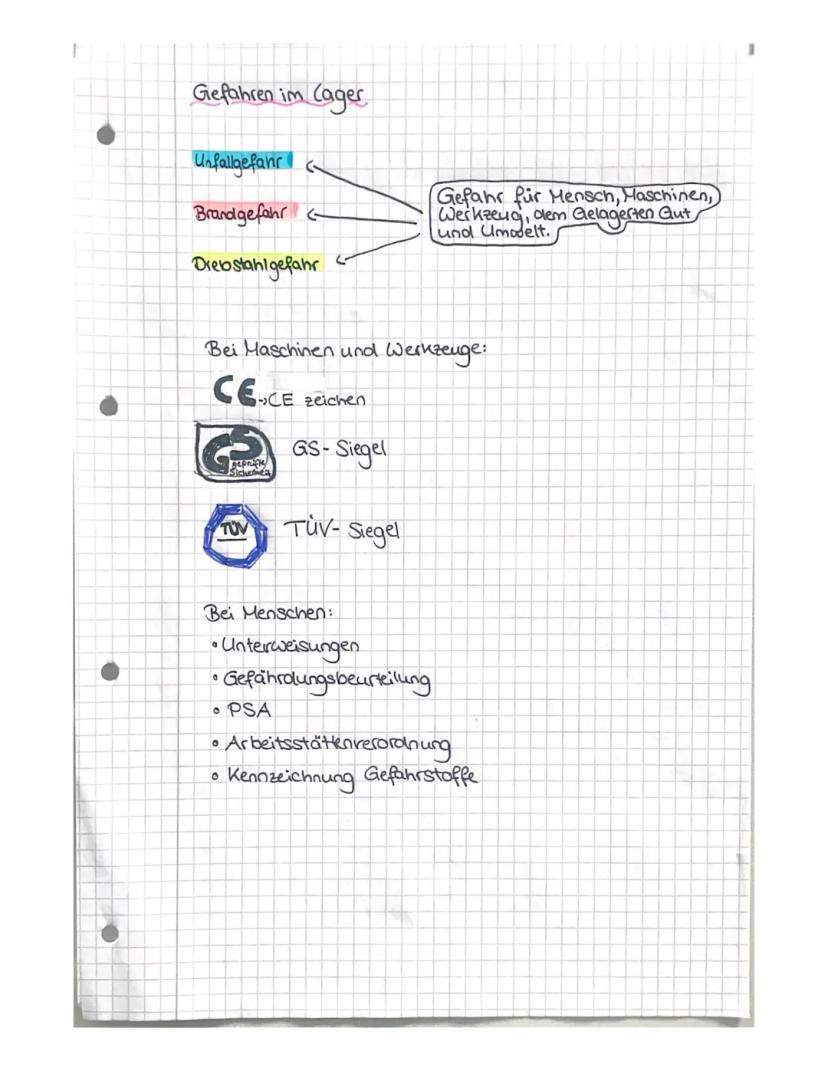 Gefahren im Lager
Unfallgefahr
Brandgefahr
Diebstahlgefahr
Gefahr für Mensch, Maschinen,
Werkzeug, dem Gelagerten Gut
und Umwelt.
Bei Maschinen und Werkzeuge:
CE → CE zeichen
GS geprüfte Sicherheit
GS- Siegel
TÜV
TÜV- Siegel
Bei Menschen:
• Unterweisungen
• Gefährdungsbeurteilung
• PSA
• Arbeitsstättenverordnung
• Kennzeichnung Gefahrstoffe